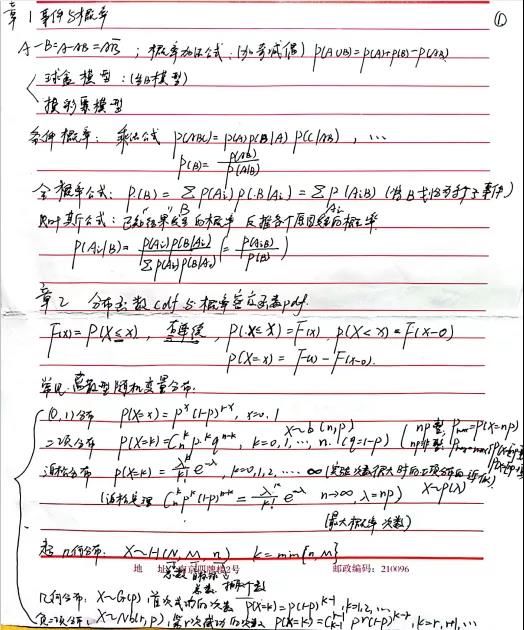 章1 事件与概率 ①
A-B=A-AB=AB̄ ; 概率加法公式:(加奇减偶) P(A∪B)=P(A)+P(B)-P(AB)
球盒模型:(占B模型)
摸彩票模型
条件概率: 乘法公式 P(ABC)=P(A)P(B|A)P(C|AB), ...
P(B)= P(AB)/P(A|B)
全概率公式: P(B)=∑P(Ai)P(B|Ai)=∑P(AiB)
贝叶斯公式:已知"结果"发生的概率 反推各个原因发生的概率
P(Ai|B)= P(Ai)P(B|Ai)/∑P(Ai)P(B|Ai) (= P(AiB)/P(B))
章2 分布函数cdf与概率密度函数pdf.
F(x)=P(X≤x), 右连续 P(X≤x)=F(x), P(X<x)=F(x-0)
P(X=x)=F(x)-F(x-0).
常见离散型随机变量分布.
(0,1)分布 P(X=x)=p^x(1-p)^{1-x}, x=0,1
X~b(n,p)
二项分布 P(X=k)=C_n^k p^k q^{n-k}, k=0,1,...,n. (q=1-p)
泊松分布 P(X=k)= λ^k/k! e^{-λ}, k=0,1,2,...∞ X~P(λ)
(泊松定理 C_n^k p^k(1-p)^{n-k} = λ^k/k! e^{-λ} n→∞ λ=np)
(最大概率次数)
超几何分布. X~H(N,M,n) k=min{n,M}
地 址:南京四牌楼2号 邮政编码:210096
几何分布: X~G(p), 首次成功的次数 P(X=k)=p(1-p)^{k-1}, k=1,2,...
负二项分布: X~Nb(r,p), 第r次成功的次数 P(X=k)=C_{k-1}^{r-1} p^r(1-p)^{k-r}, k=r,r+1,...